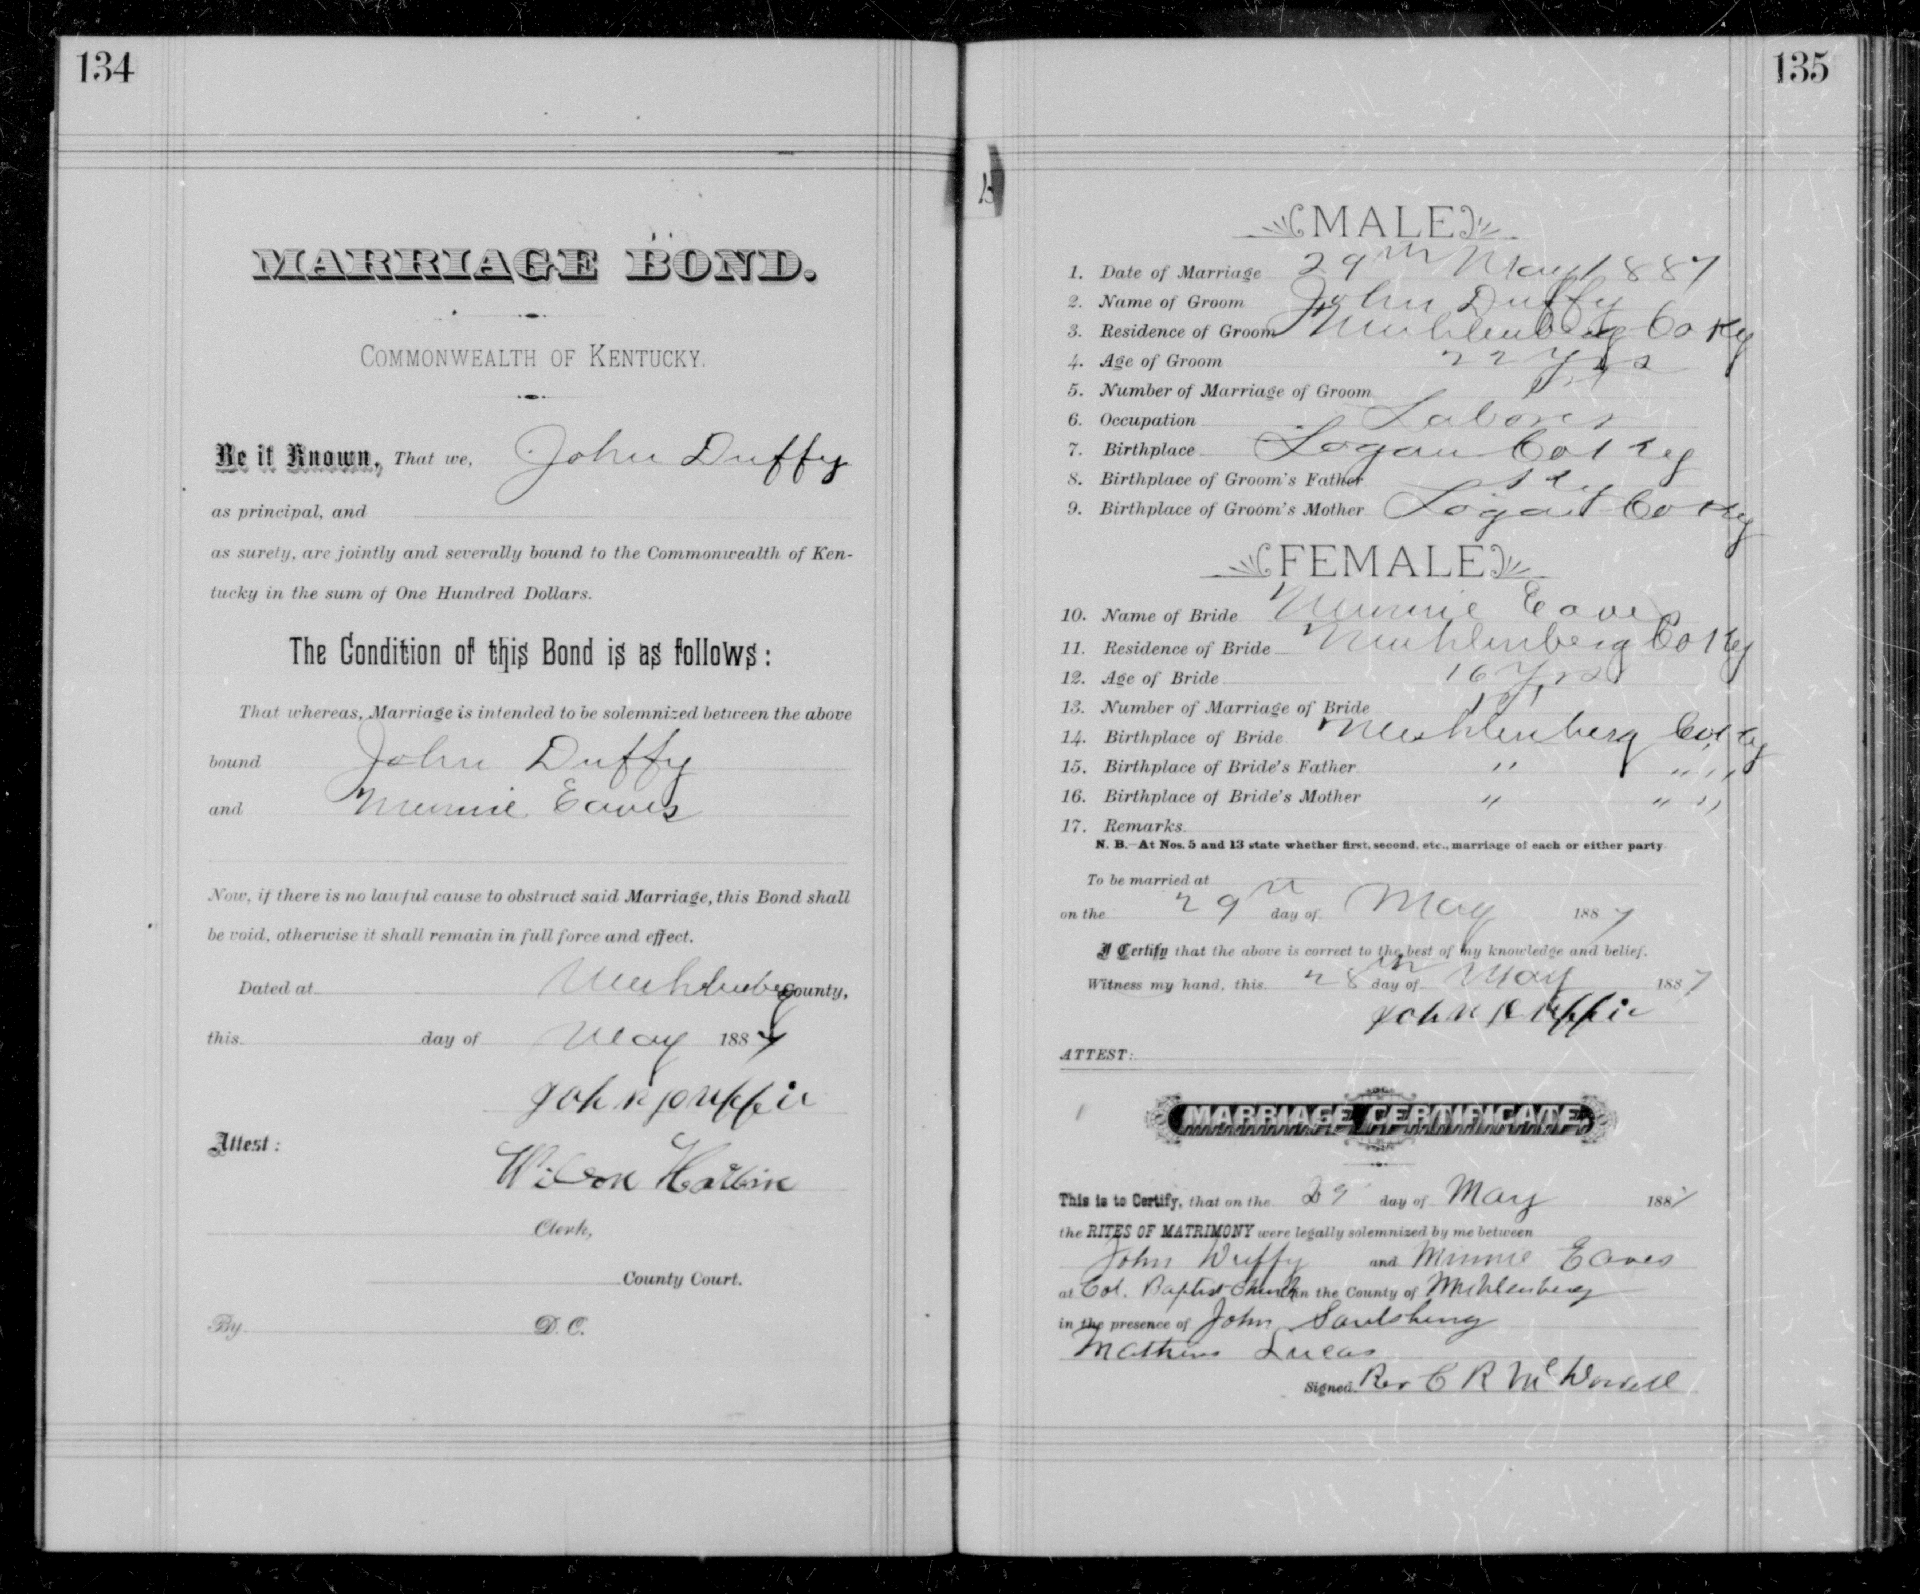 134
MARRIAGE BOND.
COMMONWEALTH OF KENTUCKY.
Be it Known, That we, John Duffy
as principal, and
as surety, are jointly and severally bound to the Commonwealth of Ken-
tucky in the sum of One Hundred Dollars.
The Condition of this Bond is as follows:
That whereas, Marriage is intended to be solemnized between the above
bound John Duffy
and Minnie Eaves
Now, if there is no lawful cause to obstruct said Marriage, this Bond shall
be void, otherwise it shall remain in full force and effect.
Dated at Muhlenberg County,
this day of May 1887
John Duffie
Attest:
Wilson Harbin
Clerk,
County Court.
By D. C.
135
MALE
1. Date of Marriage 29th May 1887
2. Name of Groom John Duffy
3. Residence of Groom Muhlenberg Co Ky
4. Age of Groom 22 Yrs
5. Number of Marriage of Groom 1st
6. Occupation Laborer
7. Birthplace Logan Co Ky
8. Birthplace of Groom's Father Ky
9. Birthplace of Groom's Mother Logan Co Ky
FEMALE
10. Name of Bride Minnie Eaves
11. Residence of Bride Muhlenberg Co Ky
12. Age of Bride 16 Yrs
13. Number of Marriage of Bride 1st
14. Birthplace of Bride Muhlenberg Co Ky
15. Birthplace of Bride's Father " " "
16. Birthplace of Bride's Mother " " "
17. Remarks
N. B.—At Nos. 5 and 13 state whether first, second, etc., marriage of each or either party.
To be married at
on the 29th day of May 1887
I Certify that the above is correct to the best of my knowledge and belief.
Witness my hand, this 28th day of May 1887
John Duffie
ATTEST:
MARRIAGE CERTIFICATE
This is to Certify, that on the 29 day of May 1887
the RITES OF MATRIMONY were legally solemnized by me between
John Duffy and Minnie Eaves
at Col. Baptist Church in the County of Muhlenberg
in the presence of John
Mathew Lucas
Signed Rev C R McDowell